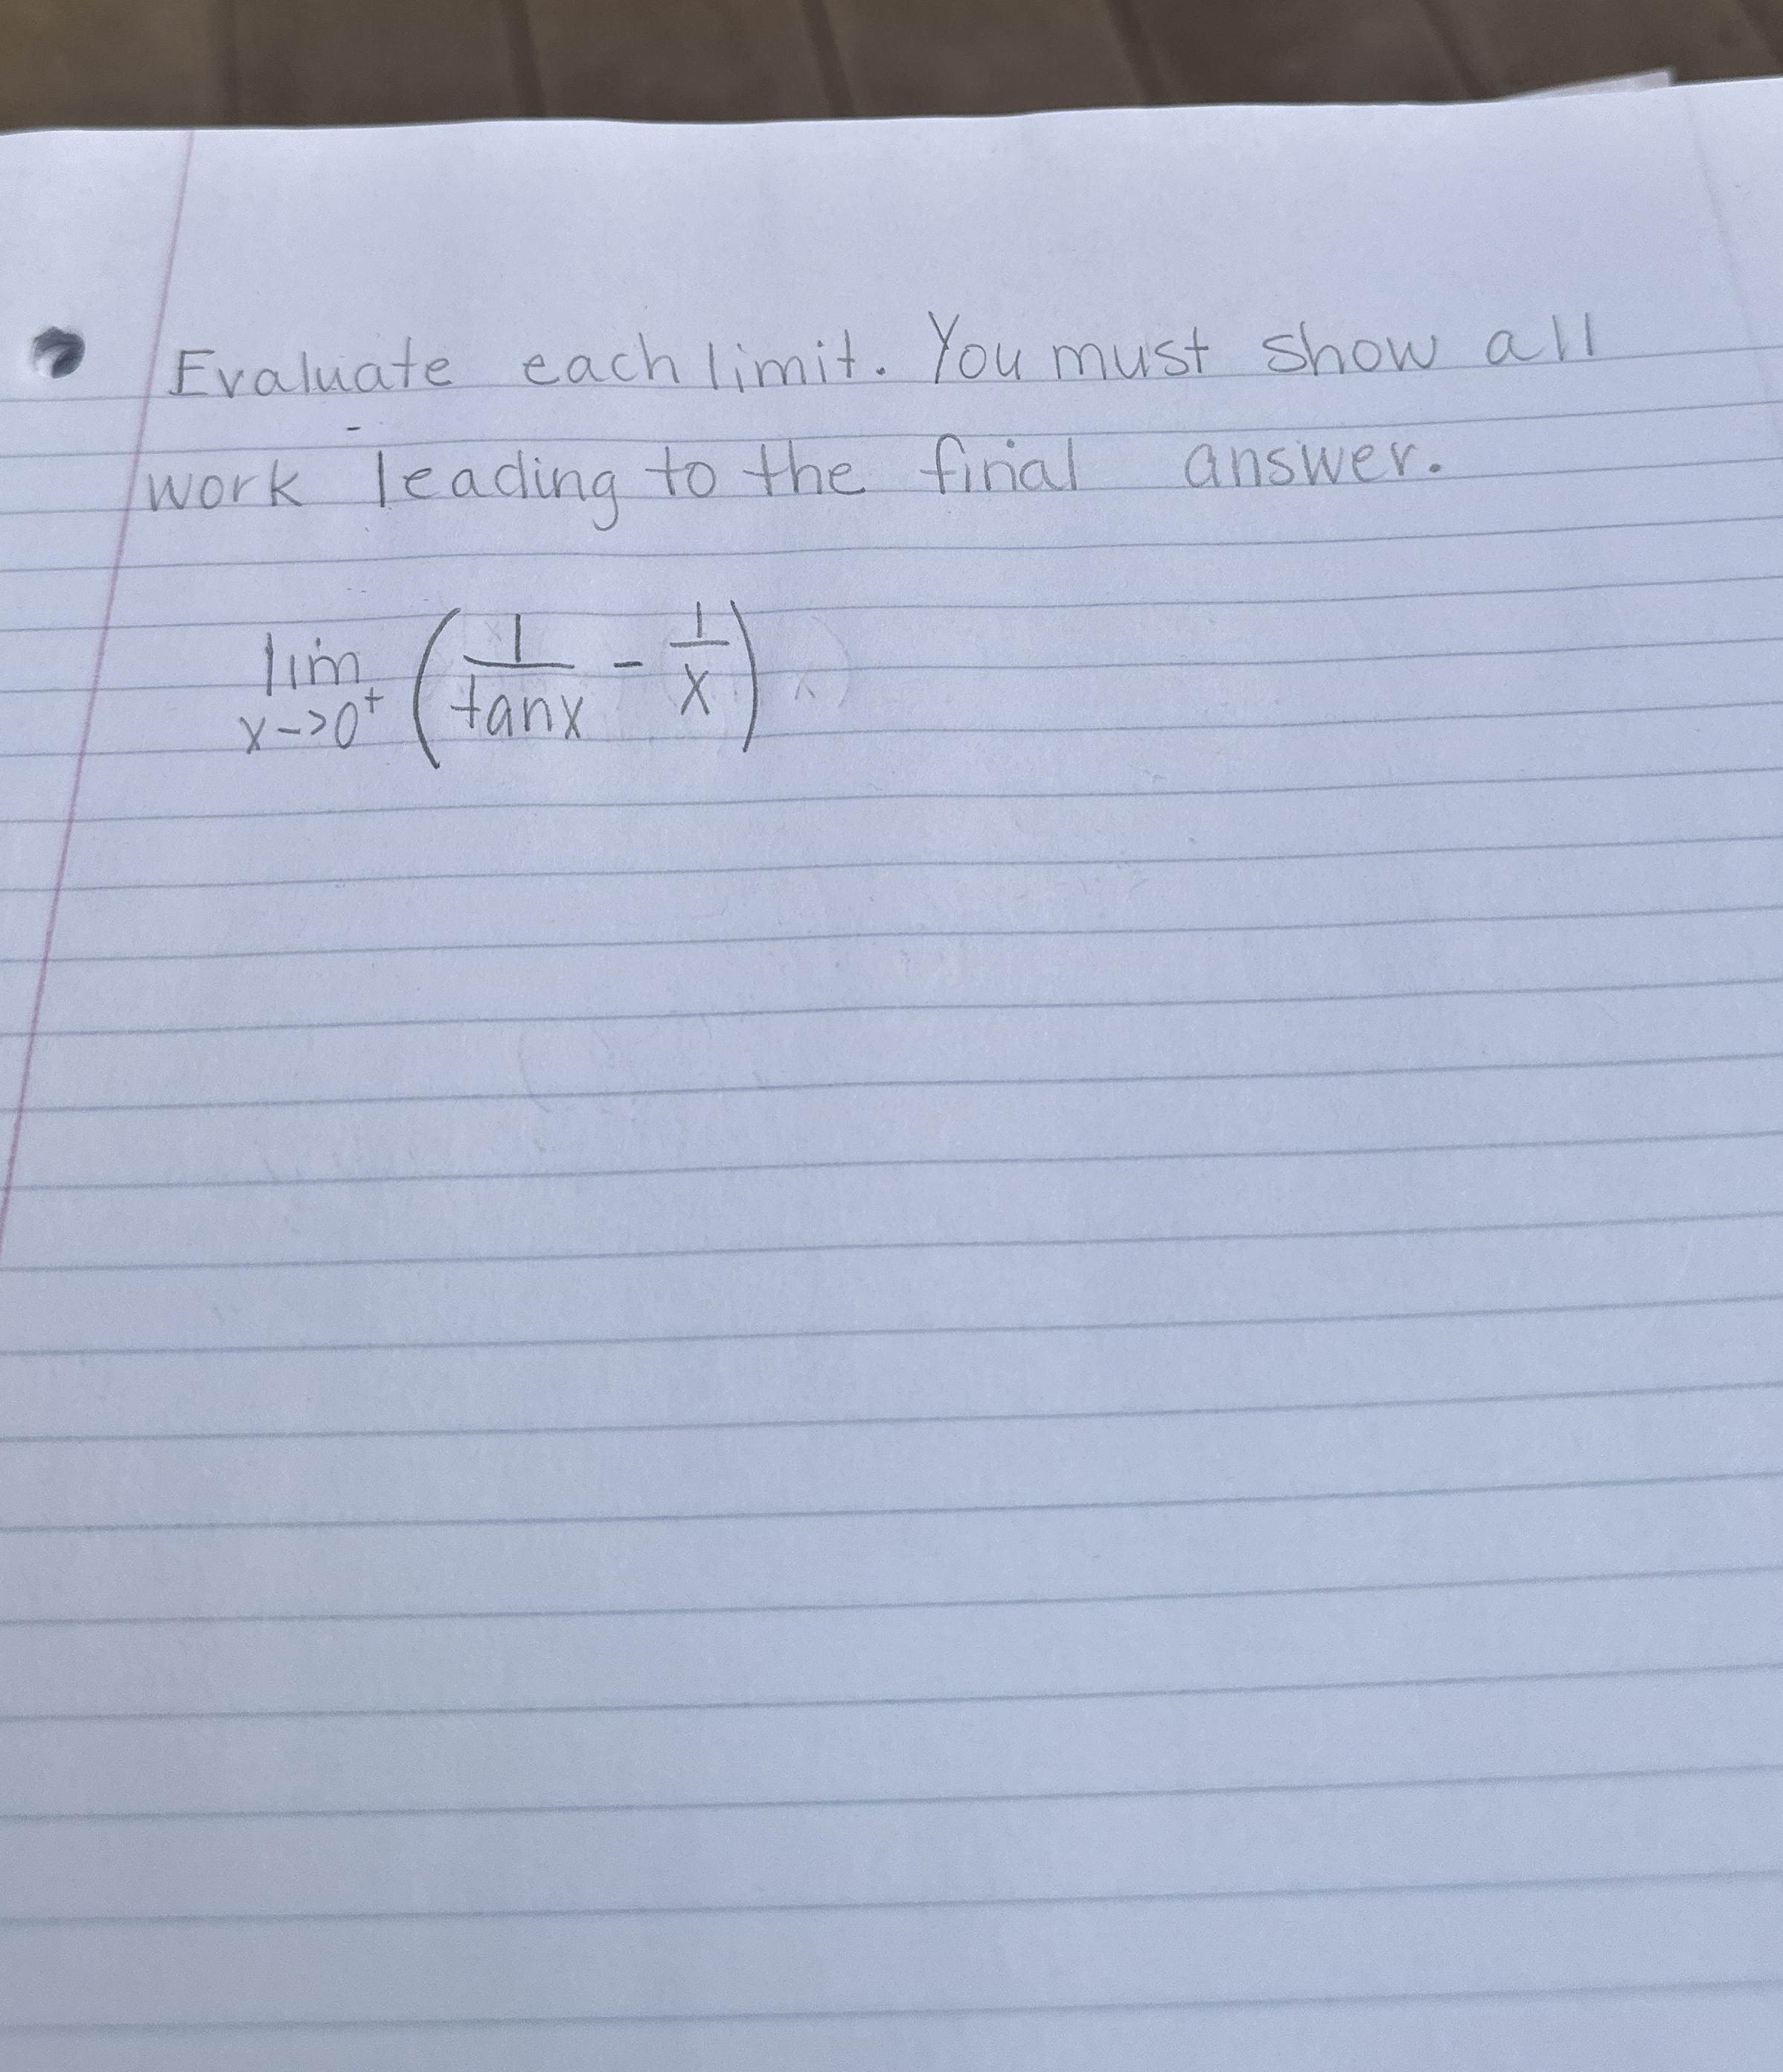 Evaluate each limit. You must show all
work leading to the final answer.
lim x->0⁺ (1/tanx - 1/x)